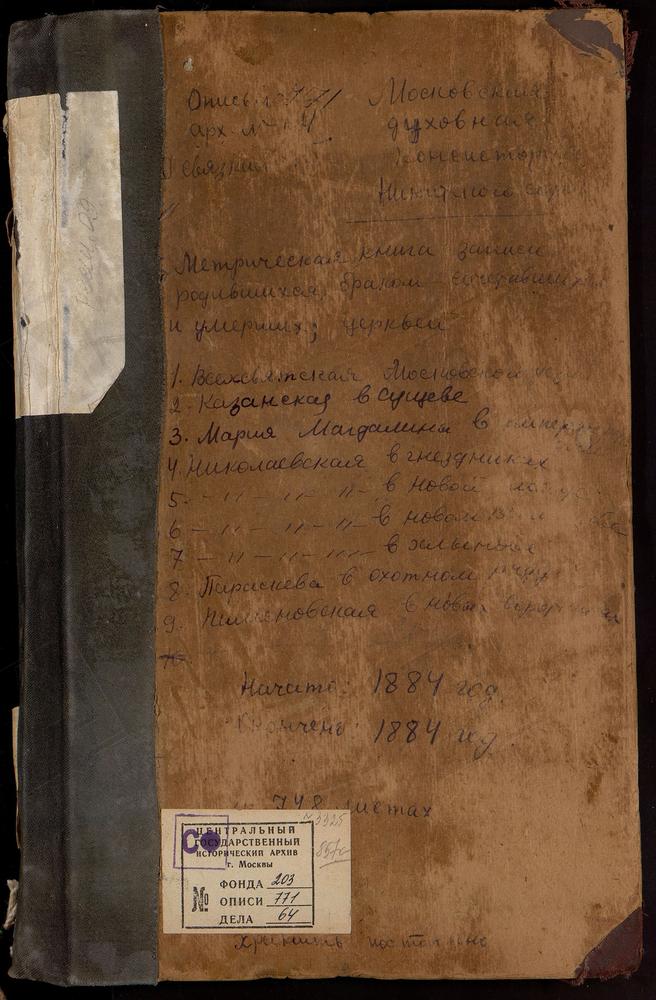 Опись № 771 Московская
арх. № духовная
связка Консистор
Никитского
Метрическая книга записи
родившихся, браком сочетавшихся
и умерших; церквей
1. Всехсвятская Московской
2. Казанская в Сущеве
3. Мария Магдалины в
4. Николаевская в гнездниках
5. – " – " – " – в новой
6 – " – " – " – в новом
7 – " – " – " – в хлынове
8. Параскева в охотном ряду
9. Пименовская в новых воротниках
Начато: 1884 год
Окончено 1884 год
748 листах
ЦЕНТРАЛЬНЫЙ
ГОСУДАРСТВЕННЫЙ
ИСТОРИЧЕСКИЙ АРХИВ
г. Москвы
№ ФОНДА 203
ОПИСИ 771
ДЕЛА 64
хранить постоянно